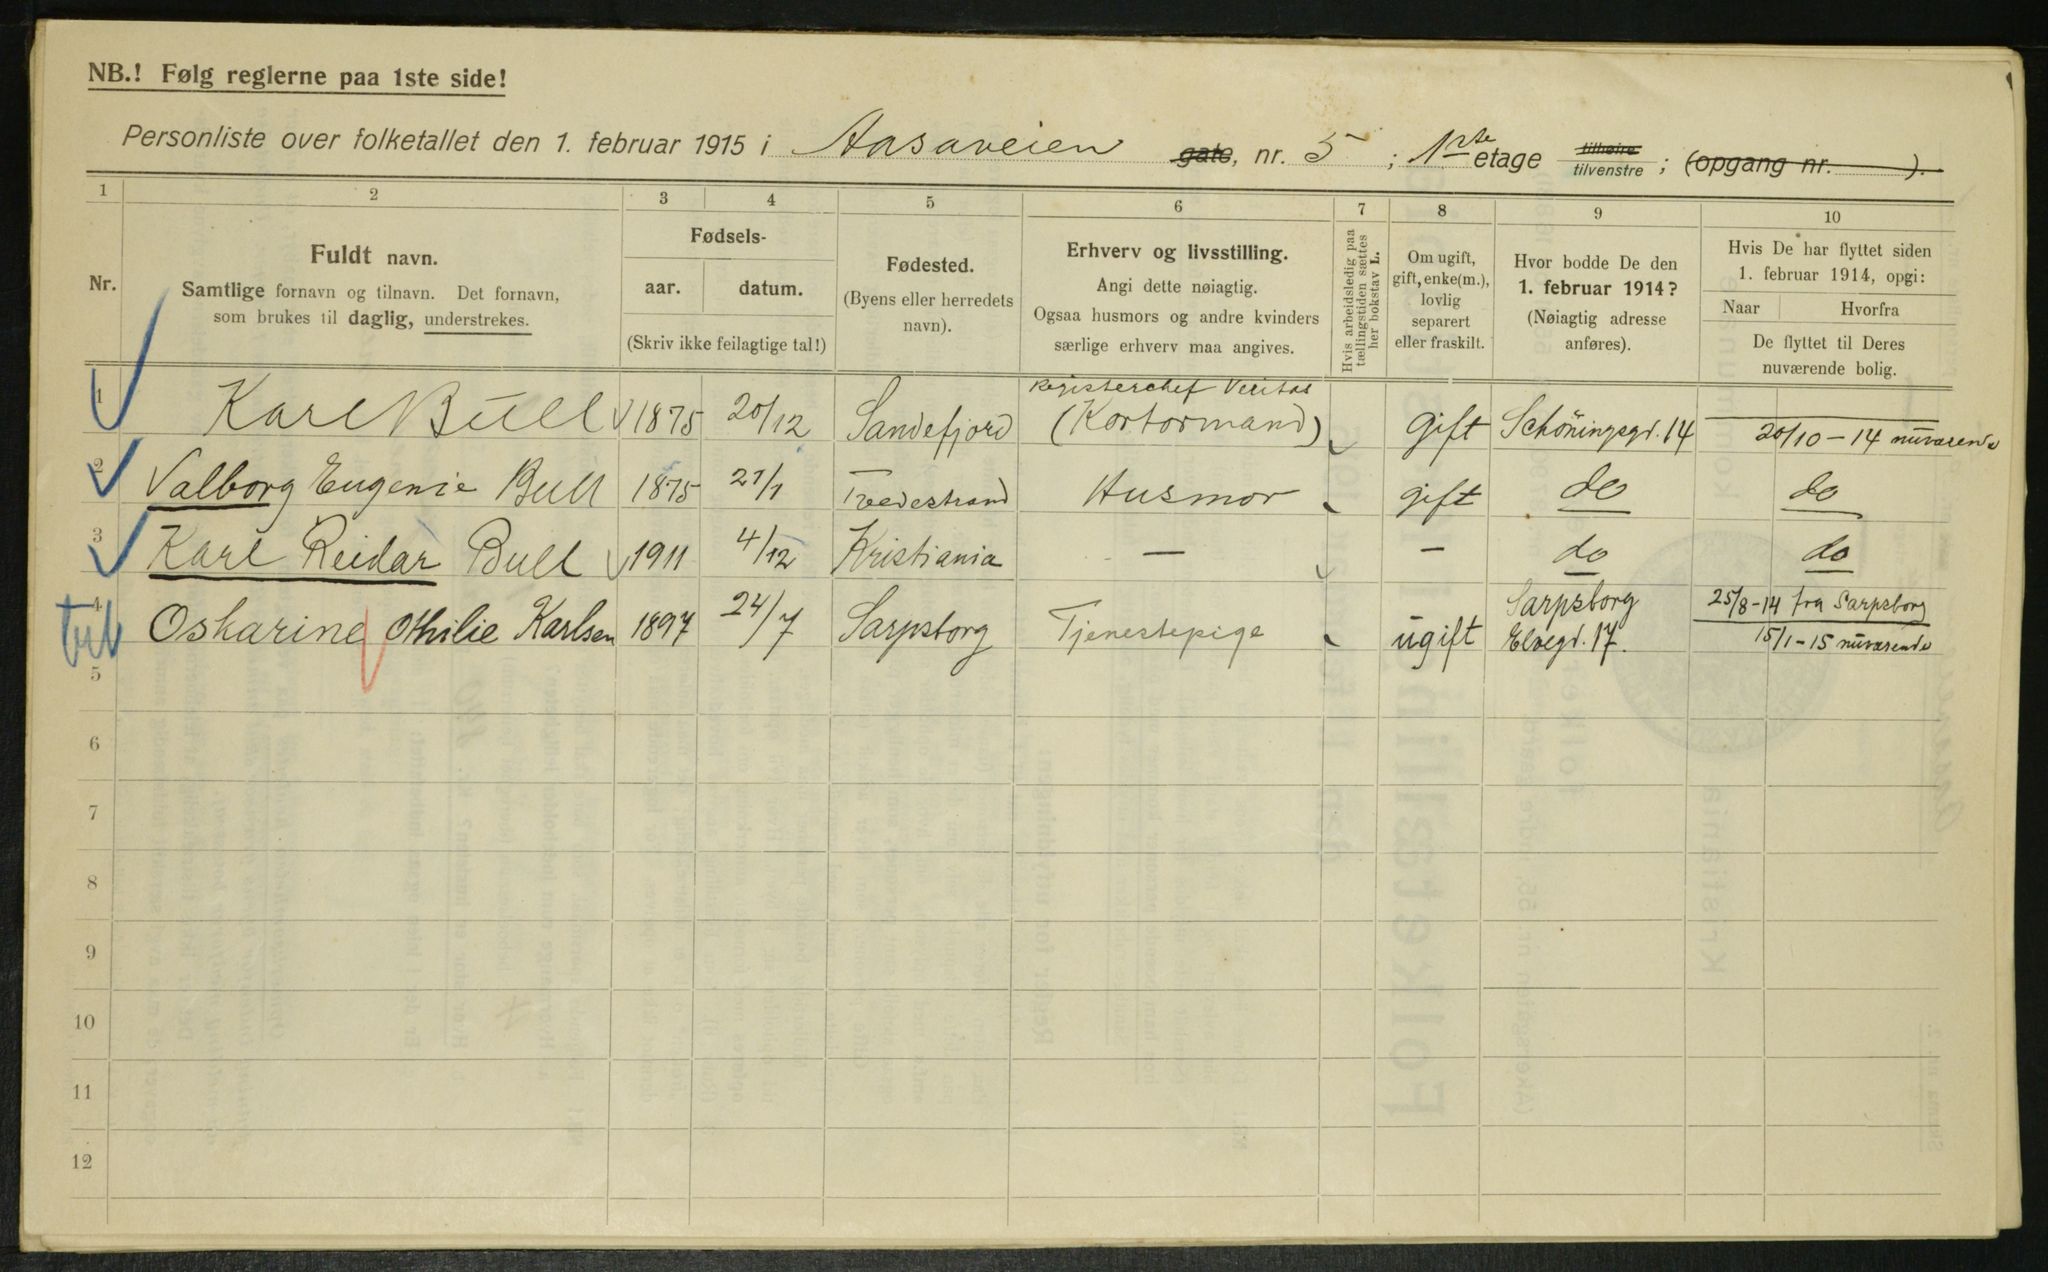 NB.! Følg reglerne paa 1ste side!
Personliste over folketallet den 1. februar 1915 i Aasaveien gate, nr. 5 ; 1ste etage tilhøire tilvenstre ; (opgang nr. ).
1 2 3 4 5 6 7 8 9 10
Nr.
Fuldt navn.
Samtlige fornavn og tilnavn. Det fornavn,
som brukes til daglig, understrekes.
Fødsels-
aar. datum.
(Skriv ikke feilagtige tal!)
Fødested.
(Byens eller herredets
navn).
Erhverv og livsstilling.
Angi dette nøiagtig.
Ogsaa husmors og andre kvinders
særlige erhverv maa angives.
Hvis arbeidsledig paa
tællingstiden sættes
her bokstav L.
Om ugift,
gift, enke(m.),
lovlig
separert
eller fraskilt.
Hvor bodde De den
1. februar 1914?
(Nøiagtig adresse
anføres).
Hvis De har flyttet siden
1. februar 1914, opgi:
Naar Hvorfra
De flyttet til Deres
nuværende bolig.
1 Karl Bull 1875 20/12 Sandefjord Registerchef Veritas (Kontormand) gift Schöningsgd. 14 20/10-14 nuværende
2 Valborg Eugenie Bull 1875 21/1 Tvedestrand Husmor gift do do
3 Karl Reidar Bull 1911 4/12 Kristiania — — do do
4 Oskarine Othilie Karlsen 1897 24/7 Sarpsborg Tjenestepige ugift Sarpsborg Elvegd. 17. 25/8-14 fra Sarpsborg 15/1-15 nuværende
5
6
7
8
9
10
11
12